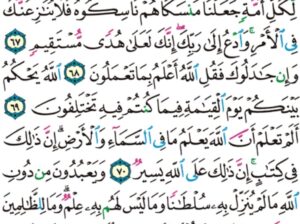 لِّكُلِّ أُمَّةٍ جَعَلْنَا مَنسَكًا هُمْ نَاسِكُوهُ فَلَا يُنَٰزِعُنَّكَ
فِى ٱلْأَمْرِ وَٱدْعُ إِلَىٰ رَبِّكَ إِنَّكَ لَعَلَىٰ هُدًى مُّسْتَقِيمٍ ٦٧
وَإِن جَٰدَلُوكَ فَقُلِ ٱللَّهُ أَعْلَمُ بِمَا تَعْمَلُونَ ٦٨ ٱللَّهُ يَحْكُمُ
بَيْنَكُمْ يَوْمَ ٱلْقِيَٰمَةِ فِيمَا كُنتُمْ فِيهِ تَخْتَلِفُونَ ٦٩
أَلَمْ تَعْلَمْ أَنَّ ٱللَّهَ يَعْلَمُ مَا فِى ٱلسَّمَآءِ وَٱلْأَرْضِ إِنَّ ذَٰلِكَ
فِى كِتَٰبٍ إِنَّ ذَٰلِكَ عَلَى ٱللَّهِ يَسِيرٌ ٧٠ وَيَعْبُدُونَ مِن دُونِ
ٱللَّهِ مَا لَمْ يُنَزِّلْ بِهِۦ سُلْطَٰنًا وَمَا لَيْسَ لَهُم بِهِۦ عِلْمٌ وَمَا لِلظَّٰلِمِينَ